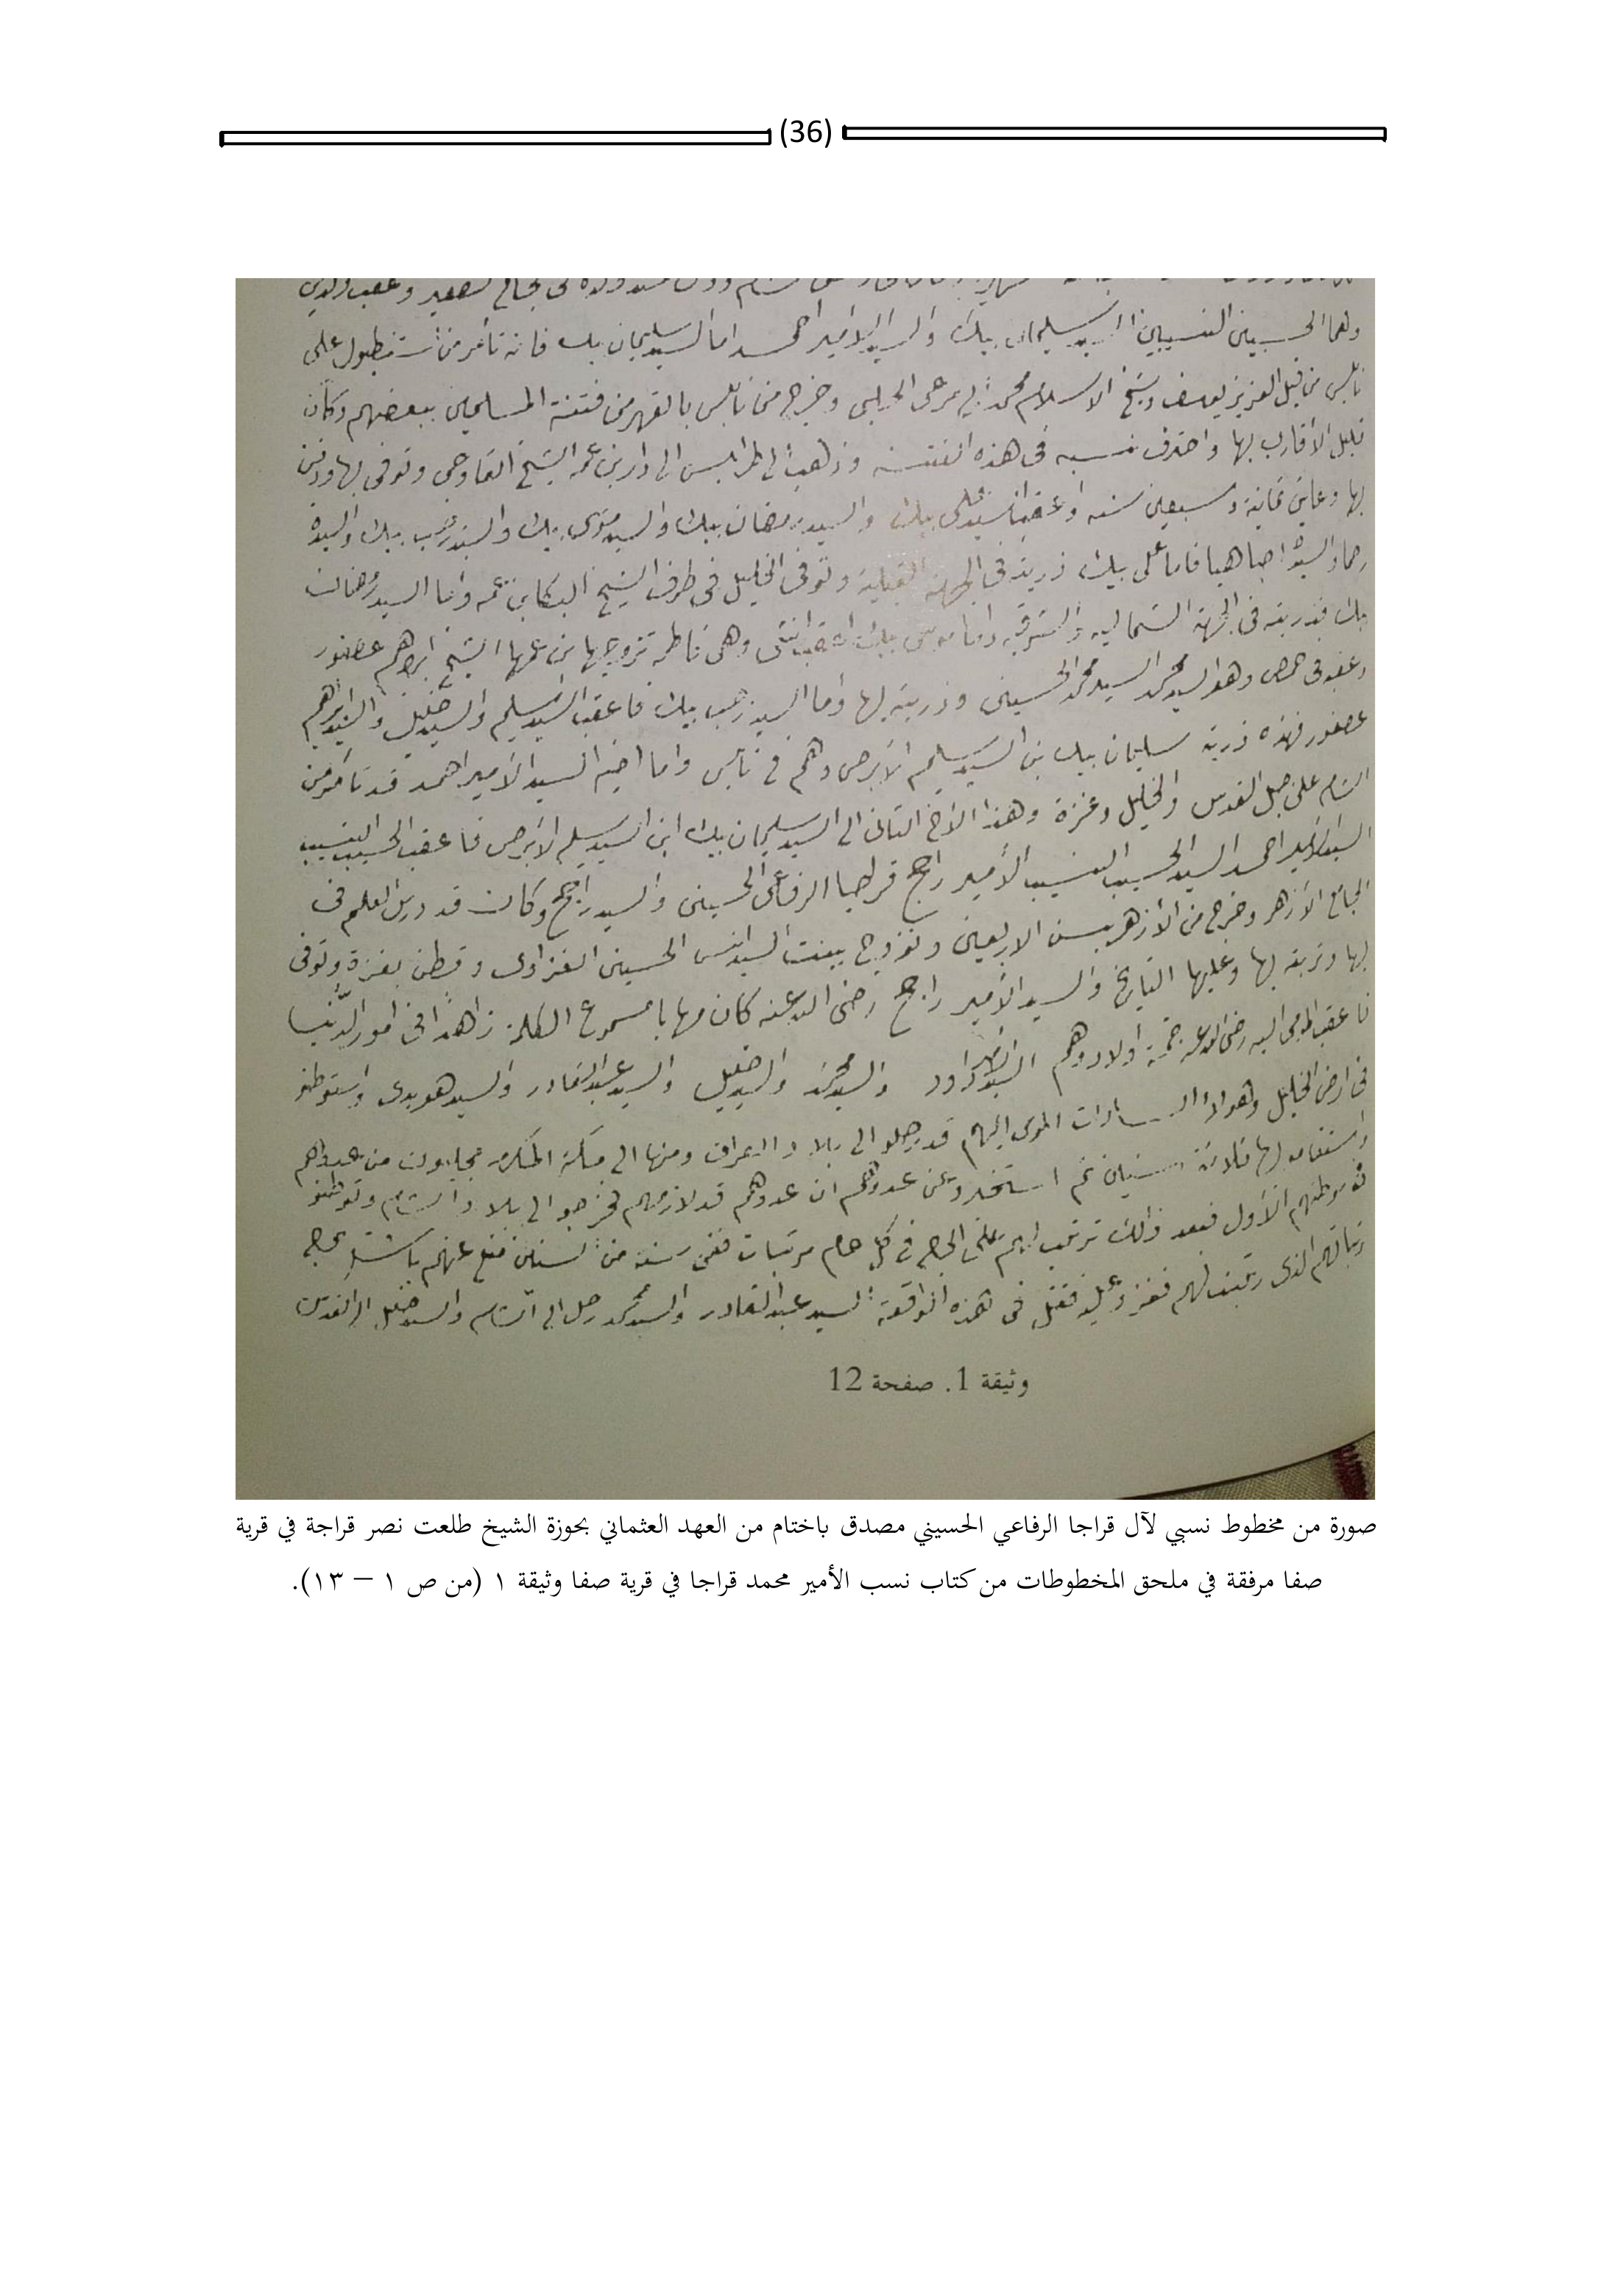 (36)
ولهما الحسبين النسيبين السيد سليمان بيك والسيد الامير احمد اما السيد سليمان بيك فانه تأمر من استنطبول على
نابلس من قبل العزيز يوسف وشيخ الاسلام محمد مرعى الحلبى وخرج من نابلس بالقهر من فتنة المسلمين ببعضهم وكان
قليل الأقارب بها واحترق نسبه فى هذه الفتنه وذهب الى طرابلس الى دار بن عمه الشيخ القاوجى وتوفى بها ودفن
بها وعاش ثمانية وسبعين سنه واعقب السيد على بيك والسيد رمضان بيك والسيد موسى بيك والسيد رجب بيك والسيدة
فاما على بيك ذريته فى الجهة القبلية وتوفى الخليل فى طرف الشيخ البكا بن عمه واما السيد رمضان
بيك فذريته فى الجهة الشماليه والشرقيه واما موسى بيك اعقب انثى وهى فاطمه تزوج بها بن عمها الشيخ ابراهيم عصفور
وعقبه فى حمص وهو السيد محمد السيد محمد الحسينى وذريته بها واما السيد رجب بيك فاعقب السيد سليم والسيد خليل والسيد ابراهيم
عصفور فهذه ذرية سليمان بيك بن السيد سليم الأبرص وهم فى نابلس واما اخيه السيد الأمير احمد قد تأمر من
الشام على جبل القدس والخليل وغزة وهذا الأخ الثانى الى السيد سليمان بيك ابن السيد سليم الأبرص فاعقب الحسيب النسيب
السيد الأمير احمد السيد الحسيب النسيب الأمير راجح قراجا الرفاعى الحسينى والسيد راجح وكان قد درس العلم فى
الجامع الأزهر وخرج من الأزهر بسن الاربعين وتزوج ببنت السيد انس الحسينى الغزاوى وقطن بغزة وتوفى
بها وتربته بها وعليها التاريخ والسيد الأمير راجح رضى الله عنه كان مهابا مسموع الكلمة زاهدا فى امور الدنيا
فاعقب المومى اليه رضى الله عنه خمسة اولاد وهم السيد داود والسيد محمد والسيد خليل والسيد عبد القادر والسيد هويدى واستوطنو
فى ارض الخليل وهولاء السادات المومى اليهم قد رحلو الى بلاد العراق ومنها الى مكة المكرمه من عدوهم
واستقامو بها ثلاثة سنين ثم استخبرو عن عدوهم ان عدوهم قد لازمهم فخرجو الى بلاد الشام وتوطنو
فى موطنهم الأول فبعد ذالك ترتب لهم على الحاج فى كل عام مرتبات ففى سنة من السنين منع عنهم باشة الحاج
الذى رتبت لهم فغزو عليه فقتل فى هذه الواقعة السيد عبد القادر والسيد محمد رحل الى الشام والسيد خليل الى القدس
وثيقة 1. صفحة 12
صورة من مخطوط نسبي لآل قراجا الرفاعي الحسيني مصدق باختام من العهد العثماني بحوزة الشيخ طلعت نصر قراجة في قرية
صفا مرفقة في ملحق المخطوطات من كتاب نسب الأمير محمد قراجا في قرية صفا وثيقة ١ (من ص ١ – ١٣).